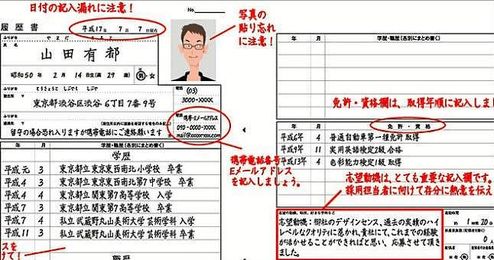 日付の記入漏れに注意！
履歴書
平成17年 7月 7日現在
No.
山田有都
昭和50年 2月 14日生(29歳) 男・女
写真の
貼り忘れ
に注意！
東京都渋谷区渋谷 6丁目7番9号
(03)
3000-XXXX
携帯・Eメールアドレス
090-0000-XXXX
留守の場合恐れ入りますが携帯電話にご連絡願います
携帯電話番号、
Eメールアドレス
を記入しましょう。
学歴・職歴(各別にまとめて書く)
学歴
平成元 3 東京都立東京東西南北小学校 卒業
平成4 3 東京都立東京東西南北第7中学校 卒業
平成4 4 東京都立関東第7高等学校 入学
平成7 3 東京都立関東第7高等学校 卒業
平成7 4 私立武蔵野丸山美術大学芸術学科 入学
平成11 3 私立武蔵野丸山美術大学芸術学科 卒業
職歴
学歴・職歴(各別にまとめて書く)
免許・資格欄は、取得年順に記入しま
年 月 免許・資格
平成6年 4 普通自動車第一種免許 取得
平成9年 11 実用英語検定2級 合格
平成13年 4 色彩能力検定1級 取得
志望動機は、とても重要な記入欄です。
採用担当者に向けて存分に熱意を伝え
志望動機：御社のデザインセンス、過去の実績のハイ
レベルなクオリティに惹かれ、貴社にて、これまでの経験
が活かせることができればと思い、応募させて頂き
ました。